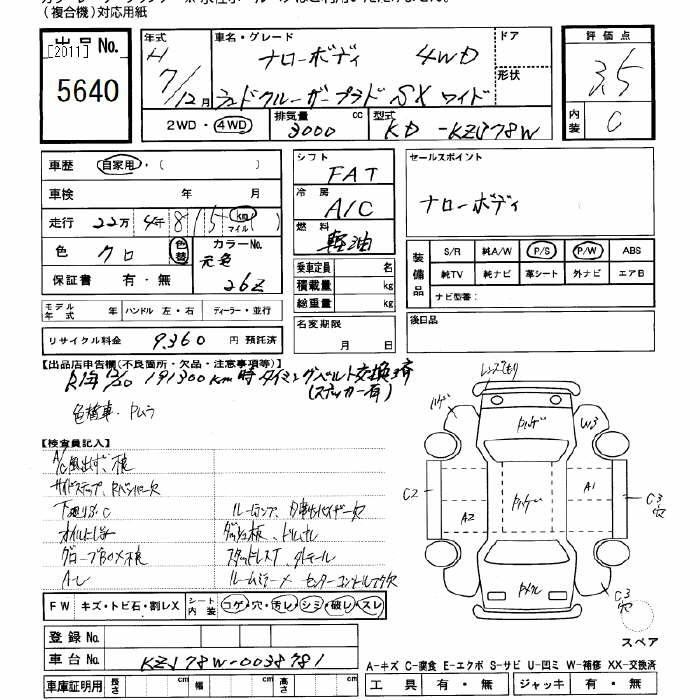 (複合機)対応用紙
出品No.
[2011]
5640
年式
H
7/12月
車名・グレード
ナローボディ 4WD
ランドクルーザープラド SX ワイド
ドア
形状
評価点
3.5
内装
C
2WD・4WD
排気量
3000 cc
型式
KD-KZJ78W
車歴 自家用・( )
車検 年 月
走行 22万 4千 8 1 5 km マイル
色 クロ 色替
カラーNo.
元色
26Z
保証書 有・無
モデル年式 年 ハンドル 左・右 ディーラー・並行
リサイクル料金 9,360 円 預託済
シフト FAT
冷房 A/C
燃料 軽油
乗車定員 名
積載量 kg
総重量 kg
名変期限
月 日
セールスポイント
ナローボディ
装備品
S/R 純A/W P/S P/W ABS
純TV 純ナビ 革シート 外ナビ エアB
ナビ型番:
後日品
【出品店申告欄(不良箇所・欠品・注意事項等)】
191300km時タイミングベルト交換済
(ステッカー有)
色替車・Pムラ
【検査員記入】
A/C風出ず、横
サイドステップ、Rバンパー欠
下廻り、C
オイルにじみ
グローブBOX横
ルームランプ、
ルームミラー
FW キズ・トビ石・割レX
シート内装 コゲ・穴・汚レ・シミ・破レ・スレ
登録No.
車台No. KZJ78W-0038781
車庫証明用 長さ cm 幅 cm 高さ cm
レンズくもり
ハゲ
W3
C2
A2
A1
C3
穴
C3
穴
スペア
A-キズ C-腐食 E-エクボ S-サビ U-凹ミ W-補修 XX-交換済
工具 有・無 ジャッキ 有・無